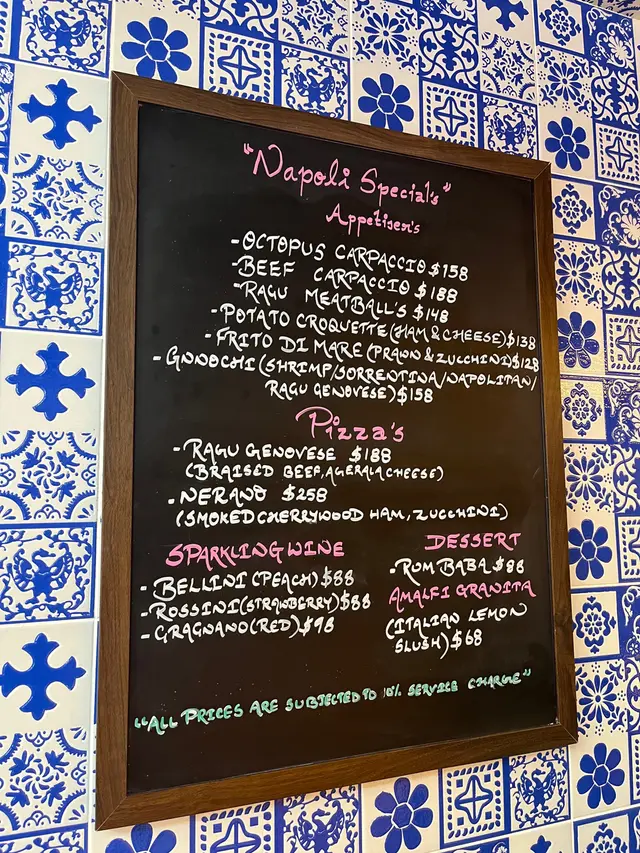 "Napoli Special's"
Appetiser's
-OCTOPUS CARPACCIO $158
-BEEF CARPACCIO $188
-RAGU MEATBALL'S $148
-POTATO CROQUETTE (HAM & CHEESE) $138
-FRITO DI MARE (PRAWN & ZUCCHINI) $128
-GNNOCHI (SHRIMP/SORRENTINA/NAPOLITAN/
RAGU GENOVESE) $158
Pizza's
-RAGU GENOVESE $188
(BRAISED BEEF, AGERALA CHEESE)
-NERANO $258
(SMOKED CHERRYWOOD HAM, ZUCCHINI)
SPARKLING WINE
-BELLINI (PEACH) $88
-ROSSINI (STRAWBERRY) $88
-GRAGNANO (RED) $98
DESSERT
-RUM BABA $88
AMALFI GRANITA
(ITALIAN LEMON
SLUSH) $68
"ALL PRICES ARE SUBJECTED TO 10% SERVICE CHARGE"